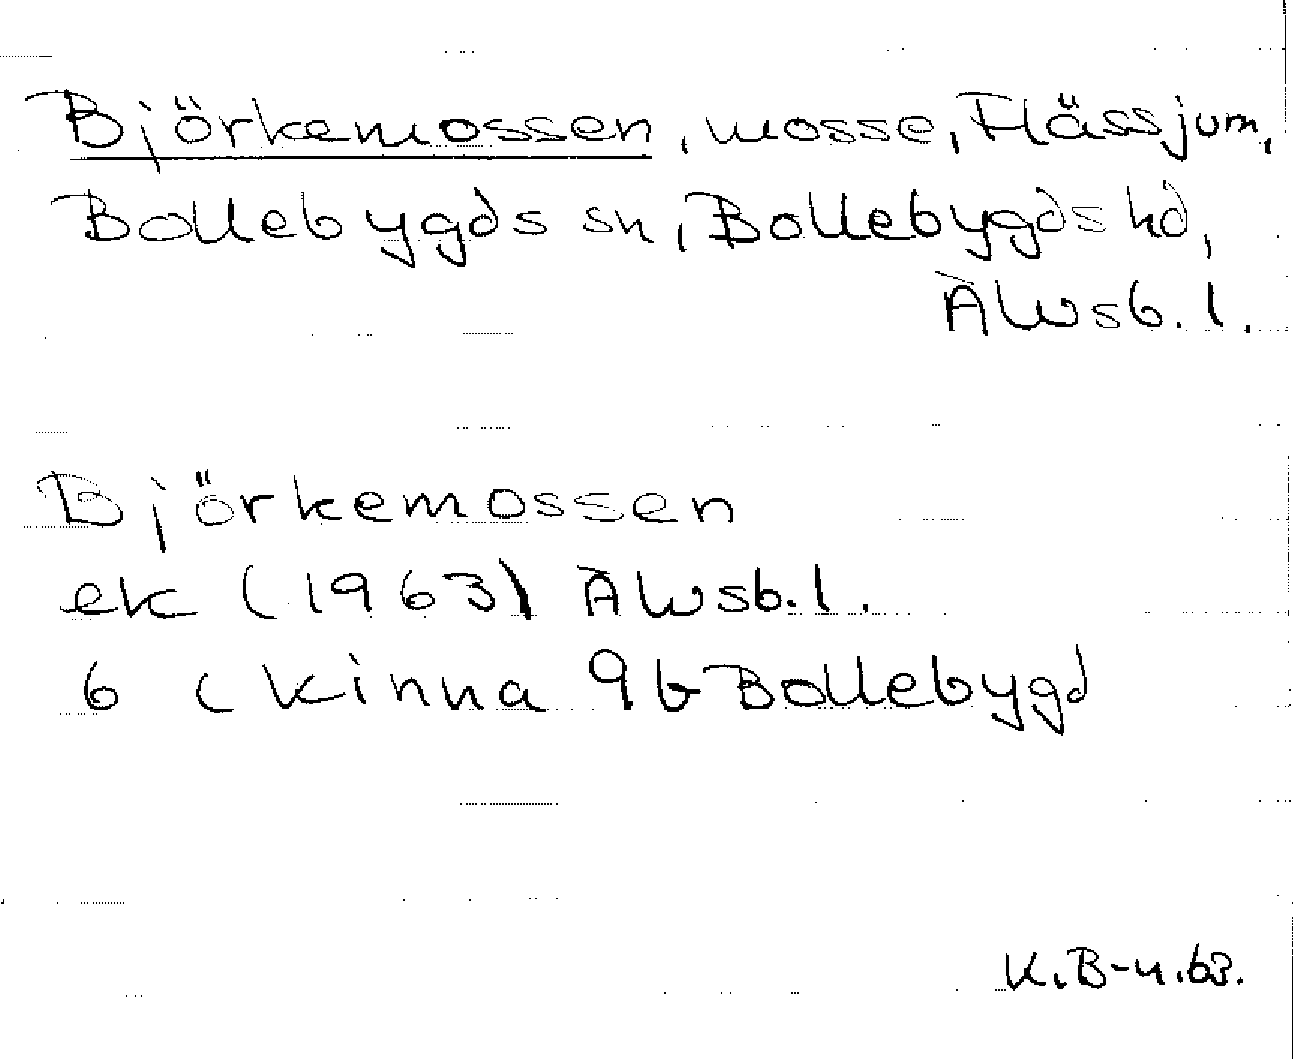 Björkemossen, mosse, Flässjum,
Bollebygds sn, Bollebygds hd,
Älvsb. l.
Björkemossen
ek (1963) Älvsb. l.
6 c Kinna 9b Bollebygd
K. B-n. 63.